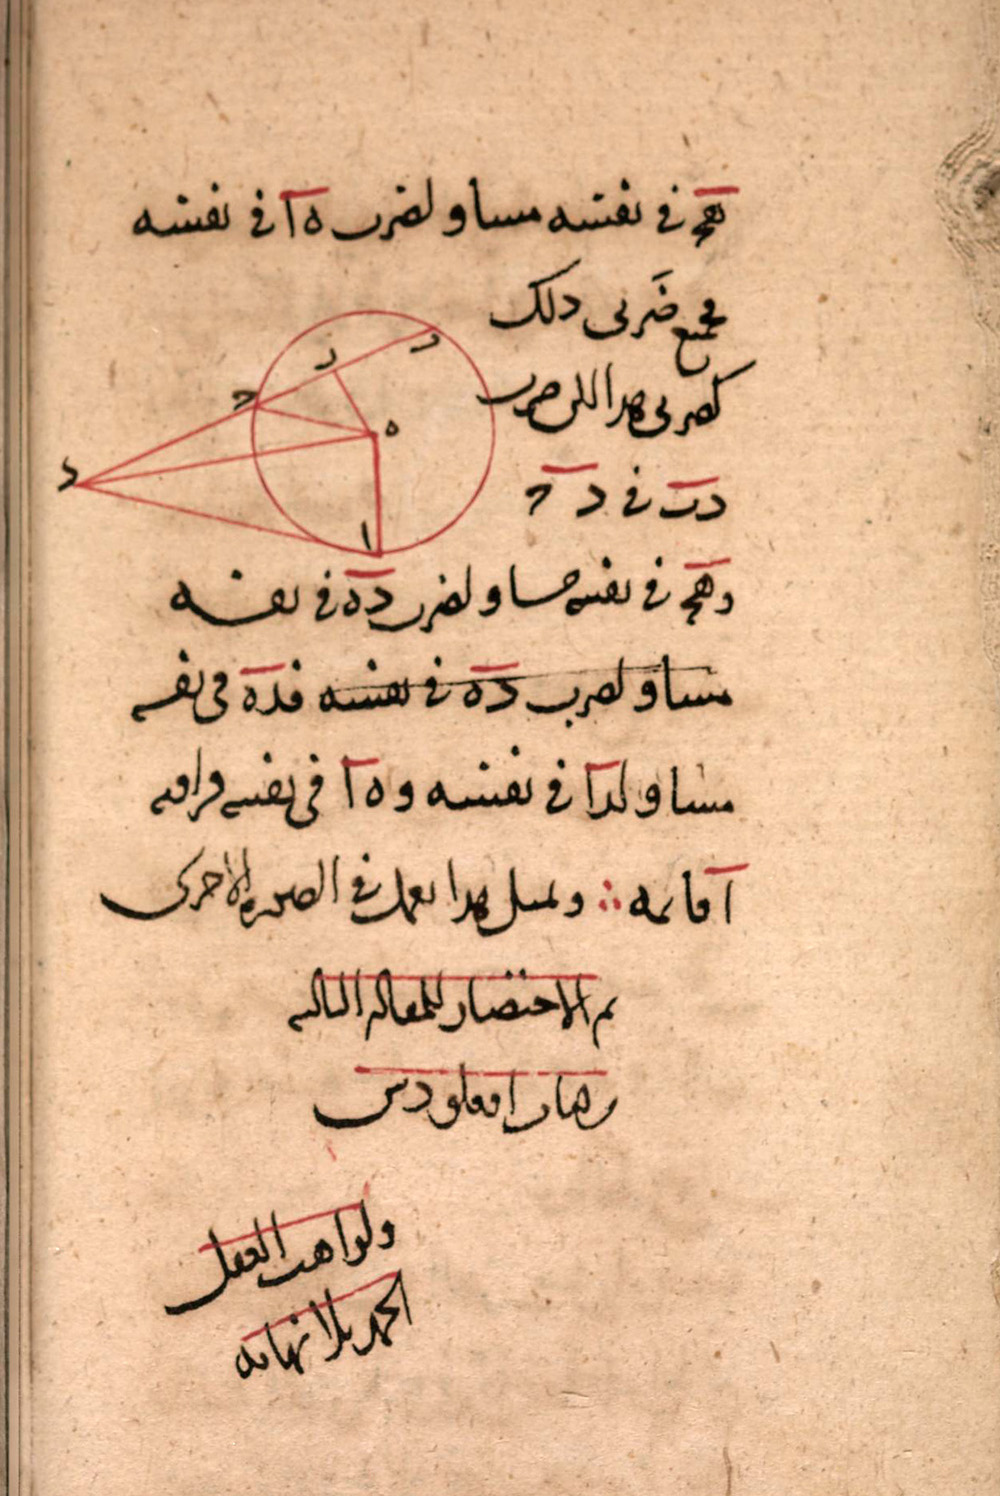 هج في نفسه مساو لضرب ه ا في نفسه
فجميع ضربي ذلك
كضربي هذا اللذين ضرب
د ب في د ح
و هج في نفسه مساو لضرب ده في نفسه
مساو لضرب ده في نفسه فده في نفسه
مساو لدا في نفسه و ه ا في نفسه فزاوية
ا قائمة ∴ وبمثل هذا نعمل في الصورة الاخرى
تم الاختصار للمقالة الثالثة
من كتاب اقليدس
ولواهب العقل
الحمد بلا نهاية
د
ر
ح
ه
د
ا